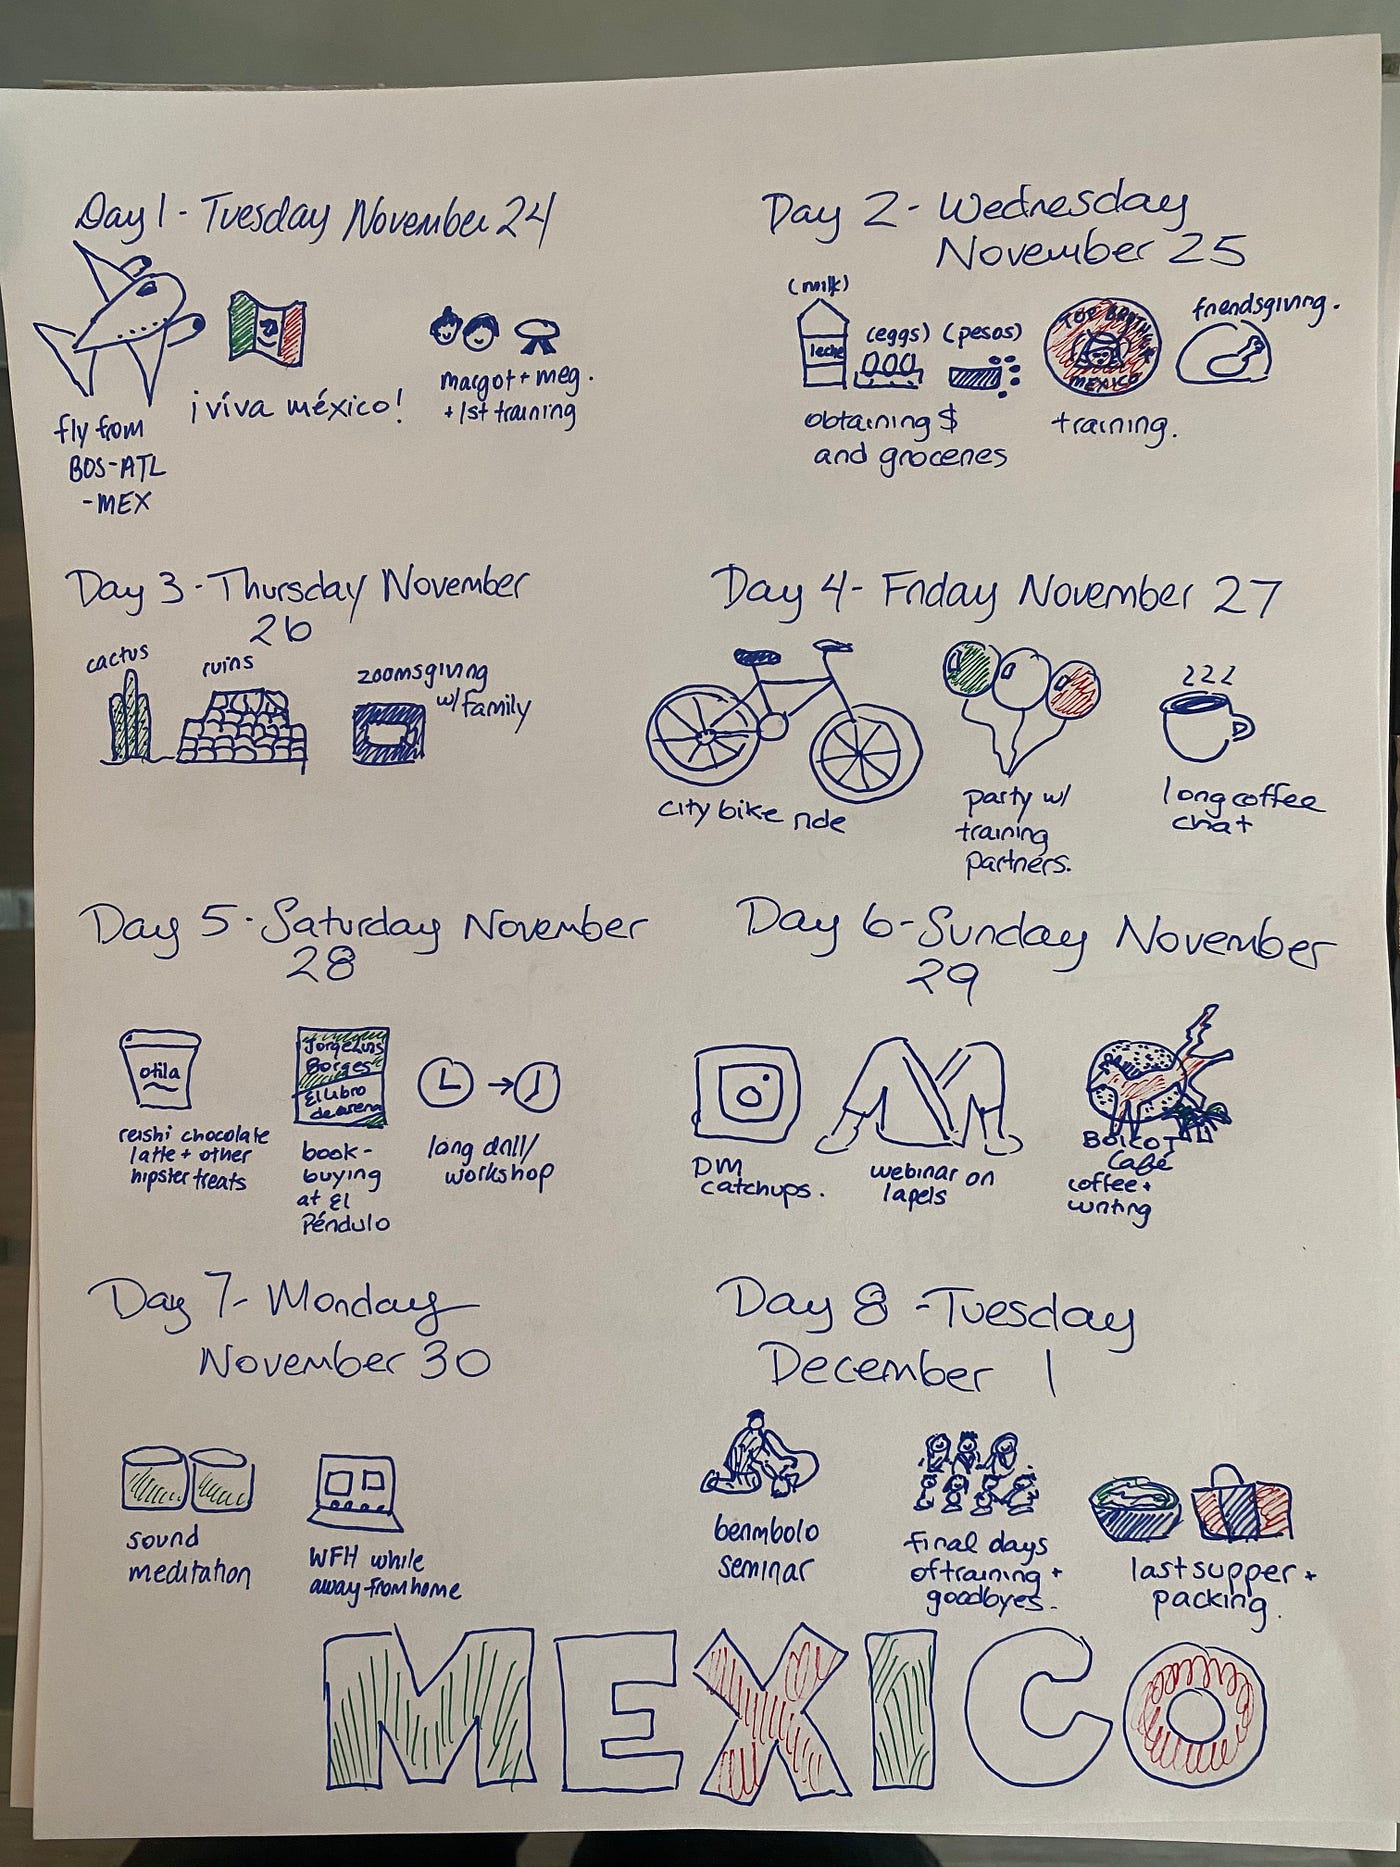 Day 1 - Tuesday November 24
fly from
BOS-ATL
-MEX
¡viva méxico!
margot + meg.
+ 1st training
Day 2 - Wednesday
November 25
(milk)
leche
(eggs) (pesos)
obtaining $
and groceries
TOP BROTHER
MEXICO
training.
friendsgiving.
Day 3 - Thursday November
26
cactus
ruins
zoomsgiving
w/ family
Day 4 - Friday November 27
city bike ride
party w/
training
partners.
long coffee
chat
Day 5 - Saturday November
28
otila
reishi chocolate
latte + other
hipster treats
Jorge Luis
Borges
El Libro
de arena
book-
buying
at El
Péndulo
long drill/
workshop
Day 6 - Sunday November
29
DM
catchups.
webinar on
lapels
BOICOT
Café
coffee +
writing
Day 7 - Monday
November 30
sound
meditation
WFH while
away-from home
Day 8 - Tuesday
December 1
berimbolo
seminar
final days
of training +
goodbyes.
last supper +
packing.
MEXICO